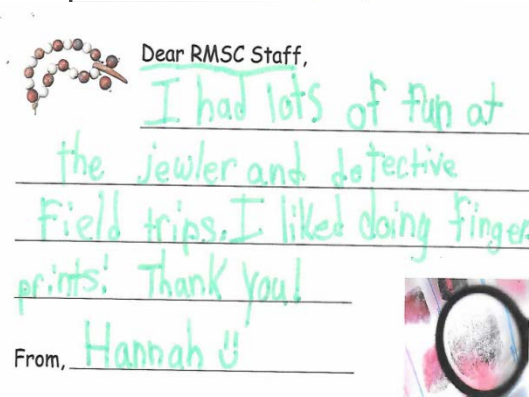 Dear RMSC Staff,
I had lots of fun at
the jewler and detective
Field trips. I liked doing finger
prints! Thank you!
From, Hannah